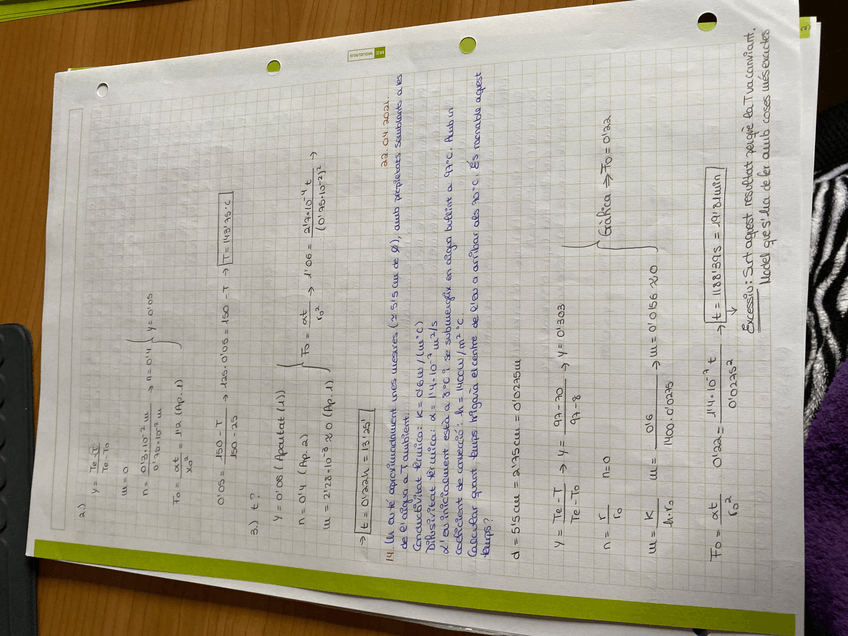 2.) y = Te-T / Te-T₀
m=0
n = 0'3·10⁻² m / 0'75·10⁻² m → n=0'4 } y=0'05
F₀ = αt / x₀² = 1'2 (Ap. 1)
0'05 = 150-T / 150-25 → 125·0'05 = 150-T → T=143'75°C
3.) t?
y = 0'05 (Apartat (1))
n = 0'4 (Ap. 2)
m = 2'28·10⁻³ ≈ 0 (Ap. 1)
F₀ = αt / r₀² → 1'06 = 2'7·10⁻⁴ t / (0'75·10⁻²)² →
→ t = 0'22h = 13'25'
22.04.2021.
14. Un ou té aproximadament unes mesures (≈ 5'5 cm de Ø), amb propietats semblants a les
de l'aigua a T ambient.
Conductivitat tèrmica: K = 0'6 W/(m°C)
Difusivitat tèrmica: α = 1'4·10⁻⁷ m²/s
L'ou inicialment està a 8°C i se submergix en aigua bullint a 97°C. Amb un
coeficient de convecció: h = 1400 W/m²°C.
Calcular quant temps trigarà el centre de l'ou a arribar als 70°C. És raonable aquest
temps?
d = 5'5 cm = 2'75 cm = 0'0275 m
y = Te-T / Te-T₀ → y = 97-70 / 97-8 → y = 0'303
n = r / r₀ n=0
m = K / h·r₀ m = 0'6 / 1400·0'0275 → m = 0'0156 ≈ 0
} Gràfica ⇒ F₀ = 0'22
F₀ = αt / r₀² 0'22 = 1'4·10⁻⁷ t / 0'0275² → t = 1188'39 s = 19'81 min
Excessiu: Surt aquest resultat perquè la T va canviant.
Model que s'ha de fer amb coses més exactes